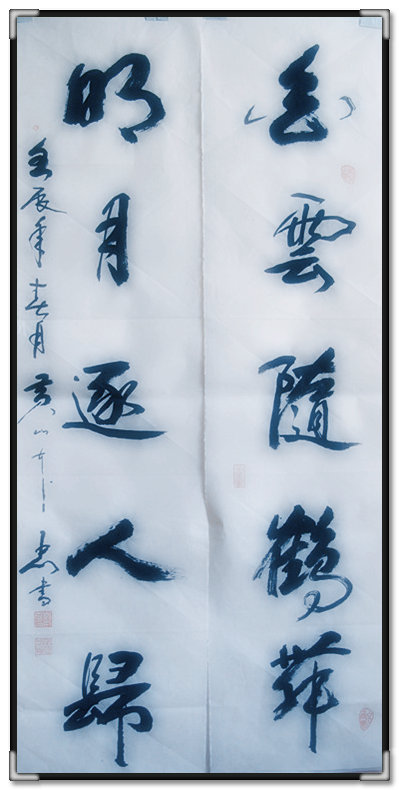 雲隨鶴舞
明月逐人歸
壬辰年春月黄山書